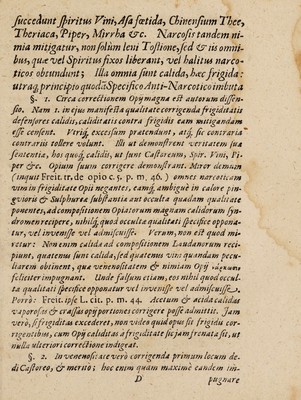 succedunt spiritus Vini, Asa fœtida, Chinensium Thee,
Theriaca, Piper, Mirrha &c. Narcosis tandem ni-
mia mitigatur, non solùm leni Tostione, sed & iis omni-
bus, quæ vel Spiritus fixos liberant, vel halitus narco-
ticos obtundunt; Illa omnia sunt calida, hæc frigida:
utraq; principio quodã Specifico Anti-Narcotico imbuta
§. 1. Circa correctionem Opii magna est autorum dissen-
sio. Nam 1. in ejus manifesta qualitate corrigenda frigiditatis
defensores calidis, caliditatis contra frigidis eam mitigandam
esse censent. Veriq́; excessum pratendunt, atq́; sic contraria
contrariis tollere volunt. Illi ut demonstrent veritatem suæ
sententiæ, hos quoq́; calidis, ut sunt Castoreum, Spir. Vini, Pi-
per &c. Opium suum corrigere demonstrant. Miror demum
(inquit Freit. tr. de opio c. 5. p. m. 46.) omnes narcoticam
vim in frigiditate Opii negantes, eamq́; ambiguè in calore pin-
gvioris & Sulphureæ substantiæ aut occulta quadam qualitate
ponentes, ad compositionem Opiatorum magnam calidorum syn-
dromen recipere, nihilq́; quod occulta qualitati specificè oppona-
tur, vel invenisse vel admiscuisse. Verum, non est quod mi-
retur: Non enim calida ad compositionem Laudanorum reci-
piunt, quatenus sunt calida, sed quatenus vim quandam pecu-
liarem obtinent, quæ venenositatem & nimiam Opii
feliciter impugnant. Unde falsum etiam, eos nihil quod occul-
ta qualitati specificè opponatur vel invenisse vel admiscuisse.
Porrò: Freit. ipse l. cit. p. m. 44. Acetum & acida calidas
vaporosas & crassas opii portiones corrigere posse admittit. Jam
verò, si frigiditas excederet, non video quid opus sit frigidis cor-
rigentibus, cum Opii caliditas à frigiditate sit jam frenata sit, ut
nulla ulteriori correctione indigeat.
§. 2. In venenositate verò corrigenda primum locum de-
di Castoreo, & meritò; hoc enim quam maximè eandem im-
D pugnare